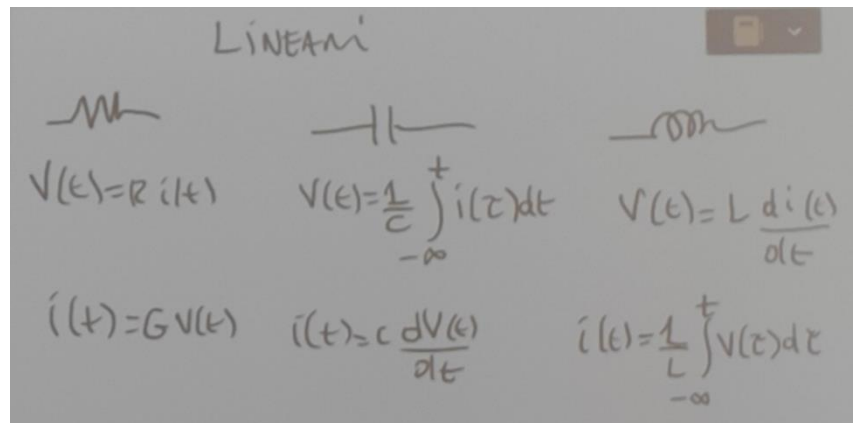 LiNEARi
V(t)=R i(t)
V(t)=1/C ∫_{-∞}^{t} i(τ)dt
V(t)= L di(t)/dt
i(t)=G V(t)
i(t)=C dV(t)/dt
i(t)=1/L ∫_{-∞}^{t} V(τ)dτ